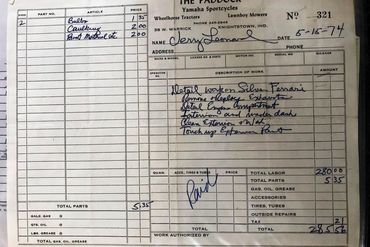 PART NO. ARTICLE PRICE
2 Bulbs 1 35
Caulking 2 00
Bent Material etc 2.00
TOTAL PARTS 5.35
GALS GAS @
QTS. OIL @
LBS. GREASE @
TOTAL GAS, OIL, GREASE
THE PADDOCK
Yamaha Sportcycles
Wheelhorse Tractors Lawnboy Mowers
39 W. WARRICK KNIGHTSTOWN, IND.
No 321
5-15-74
Jerry Leonard
DESCRIPTION OF WORK AMOUNT
Detail work on Silver Ferrari
Remove & Replace Exhaust
Detail Engine Compartment
Interior and under dash
Clean Exterior & Wax
Touch up Exterior Paint
Paid
QUAN. ACCS., TIRES & TUBES PRICE
TOTAL LABOR 280.00
TOTAL PARTS 5 35
GAS, OIL, GREASE
ACCESSORIES
TIRES, TUBES
OUTSIDE REPAIRS
TAX 21
TOTAL 285.56
WORK AUTHORIZED BY